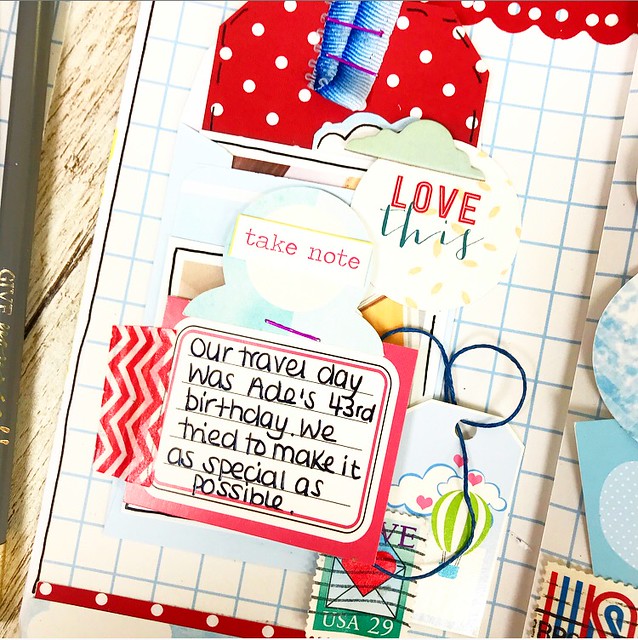 LOVE
this
take note
Our travel day
was Ade's 43rd
birthday. We
tried to make it
as special as
possible.
VE
USA 29
GIVE